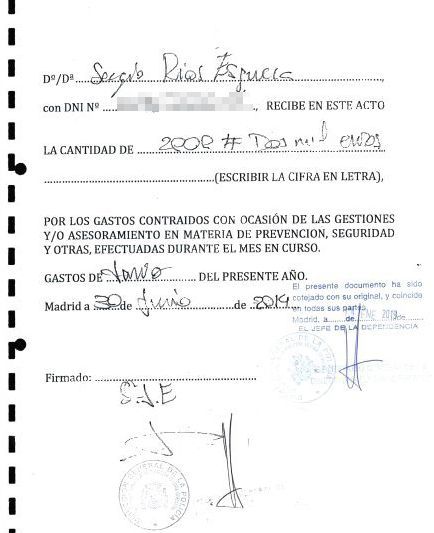 Dº/Dª Sergio Rios Esgueva
con DNI Nº , RECIBE EN ESTE ACTO
LA CANTIDAD DE 2000 # Dos mil euros
(ESCRIBIR LA CIFRA EN LETRA),
POR LOS GASTOS CONTRAIDOS CON OCASIÓN DE LAS GESTIONES
Y/O ASESORAMIENTO EN MATERIA DE PREVENCION, SEGURIDAD
Y OTRAS, EFECTUADAS DURANTE EL MES EN CURSO.
GASTOS DE Junio DEL PRESENTE AÑO.
Madrid a 30 de Junio de 2014
El presente documento ha sido
cotejado con su original, y coincide
en todas sus partes.
Madrid, a de ENE 2019
EL JEFE DE LA DEPENDENCIA
Firmado:
S.J.E
DIRECCION GENERAL DE LA POLICIA